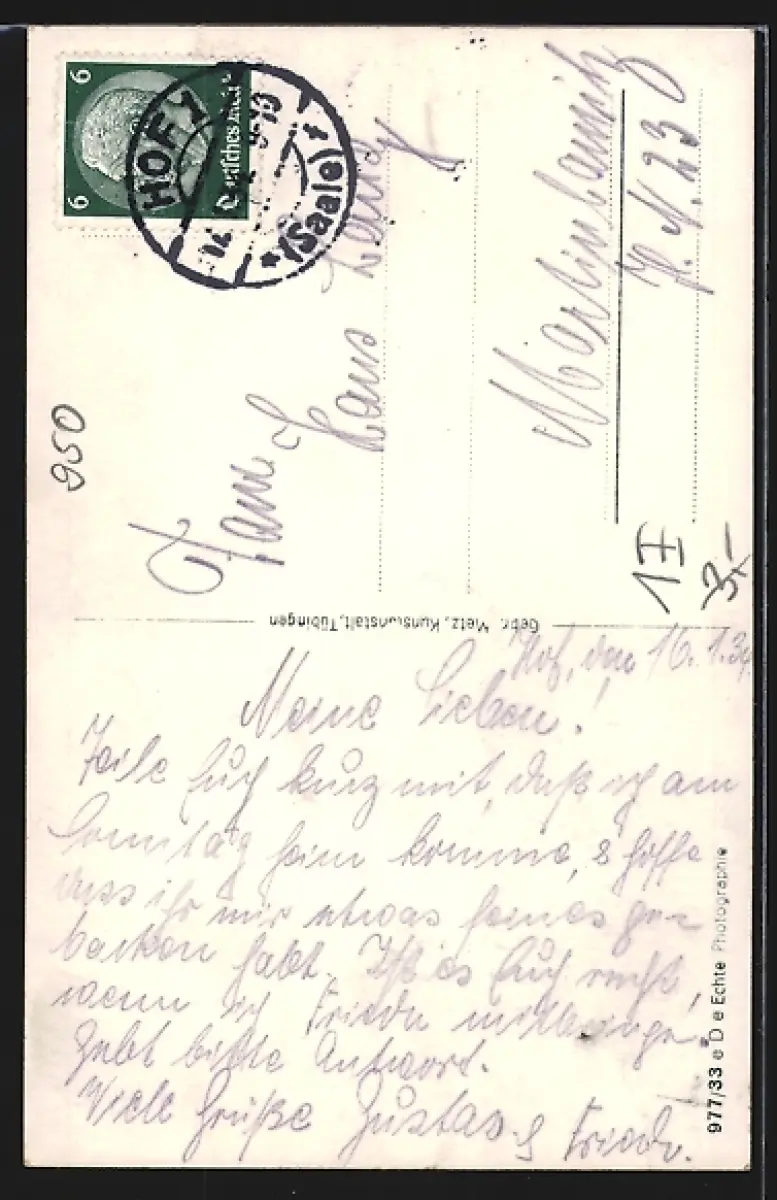 6
6
Deutsches Reich
HOF 1
(Saale) f
Hans
Martinlamitz
H. N. 23
950
1 I
3,-
Gebr. Metz, Kunstanstalt, Tübingen
Hof, den 16. 1. 34.
Meine Lieben!
Teile Euch kurz mit, daß ich am
Sonntag heim komme, & hoffe
dass ihr mir etwas feines ge-
backen habt. Ist es Euch recht,
wenn ich Friedr mitbringe.
Gebt bitte Antwort.
Viele Grüße Gustav & Friedr.
977/33 e D e Echte Photographie